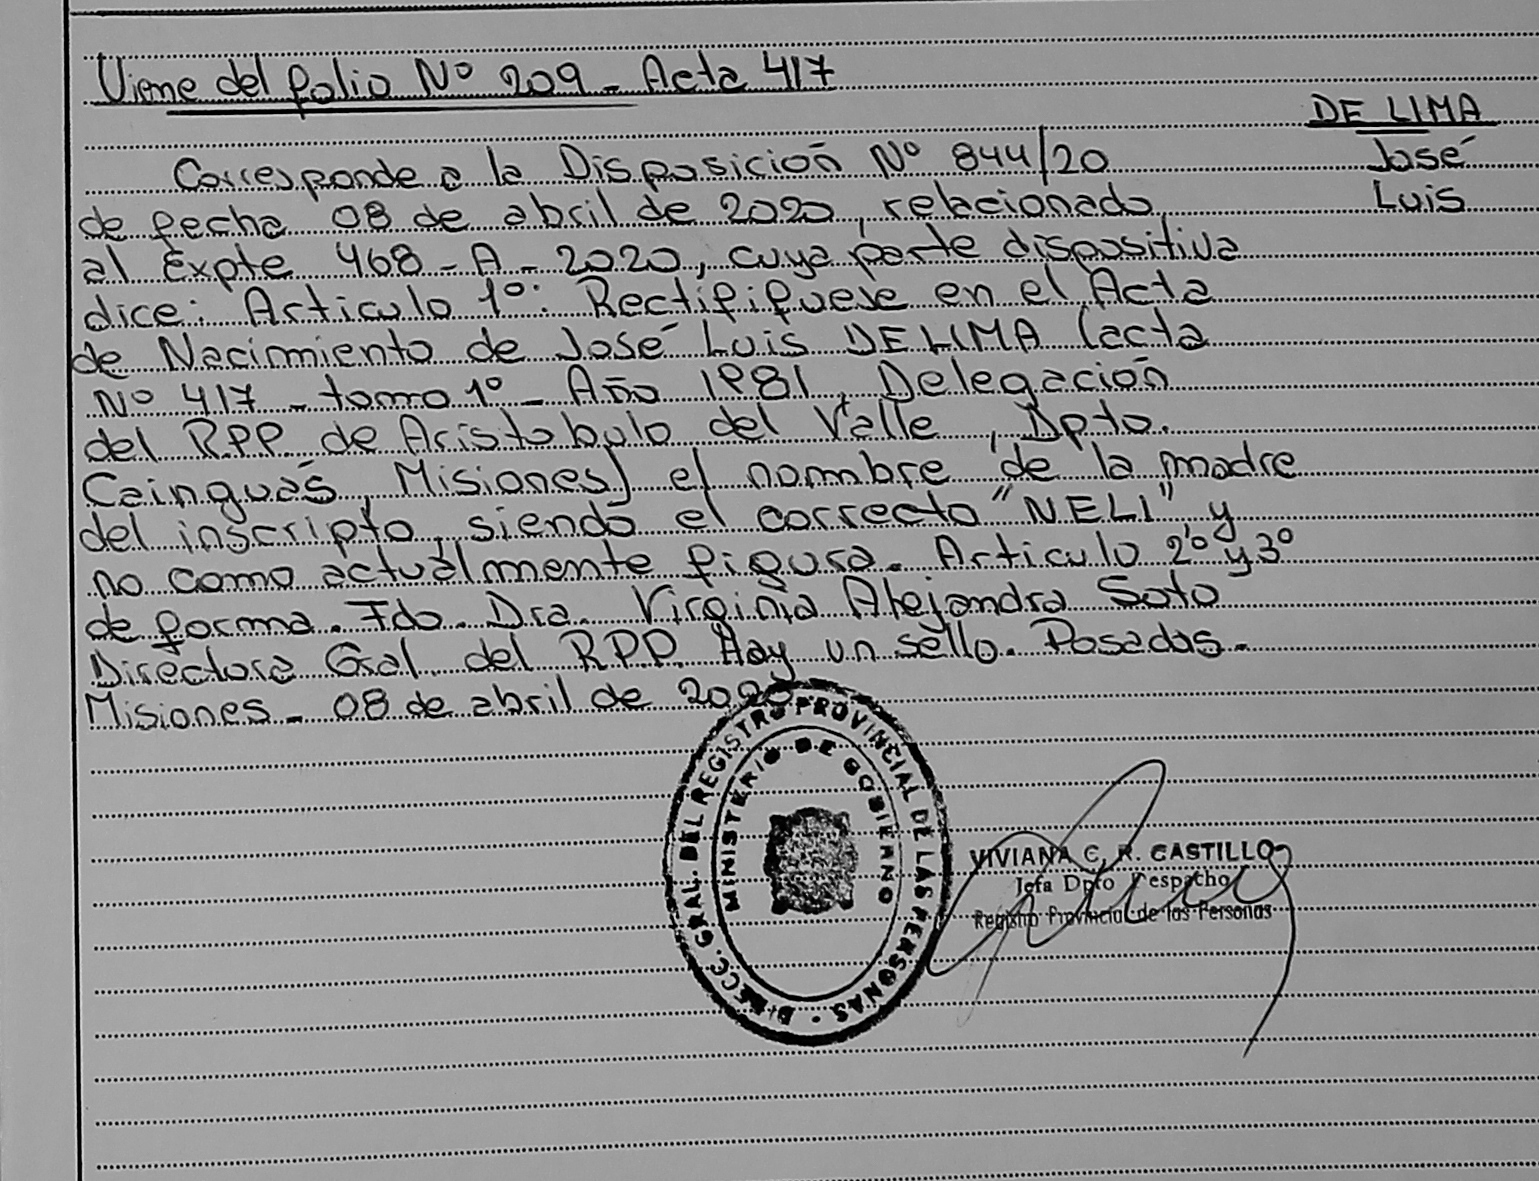 Viene del folio Nº 209 - Acta 417
DE LIMA
José
Luis
Corresponde a la Disposición Nº 844/20
de fecha 08 de abril de 2020, relacionado
al Expte 468-A-2020, cuya parte dispositiva
dice: Articulo 1º: Rectifíquese en el Acta
de Nacimiento de José Luis DE LIMA (acta
Nº 417 - tomo 1º - Año 1981, Delegación
del R.P.P. de Aristobulo del Valle, Dpto.
Cainguás, Misiones) el nombre de la madre
del inscripto, siendo el correcto "NELI", y
no como actualmente figura. Articulo 2º y 3º
de forma. Fdo. Dra. Virginia Alejandra Soto
Directora Gral del R.P.P. Hay un sello. Posadas.
Misiones - 08 de abril de 2020
DIRECC. GRAL. DEL REGISTRO PROVINCIAL DE LAS PERSONAS -
MINISTERIO DE GOBIERNO
VIVIANA C. R. CASTILLO
Jefa Dpto Despacho
Registro Provincial de las Personas